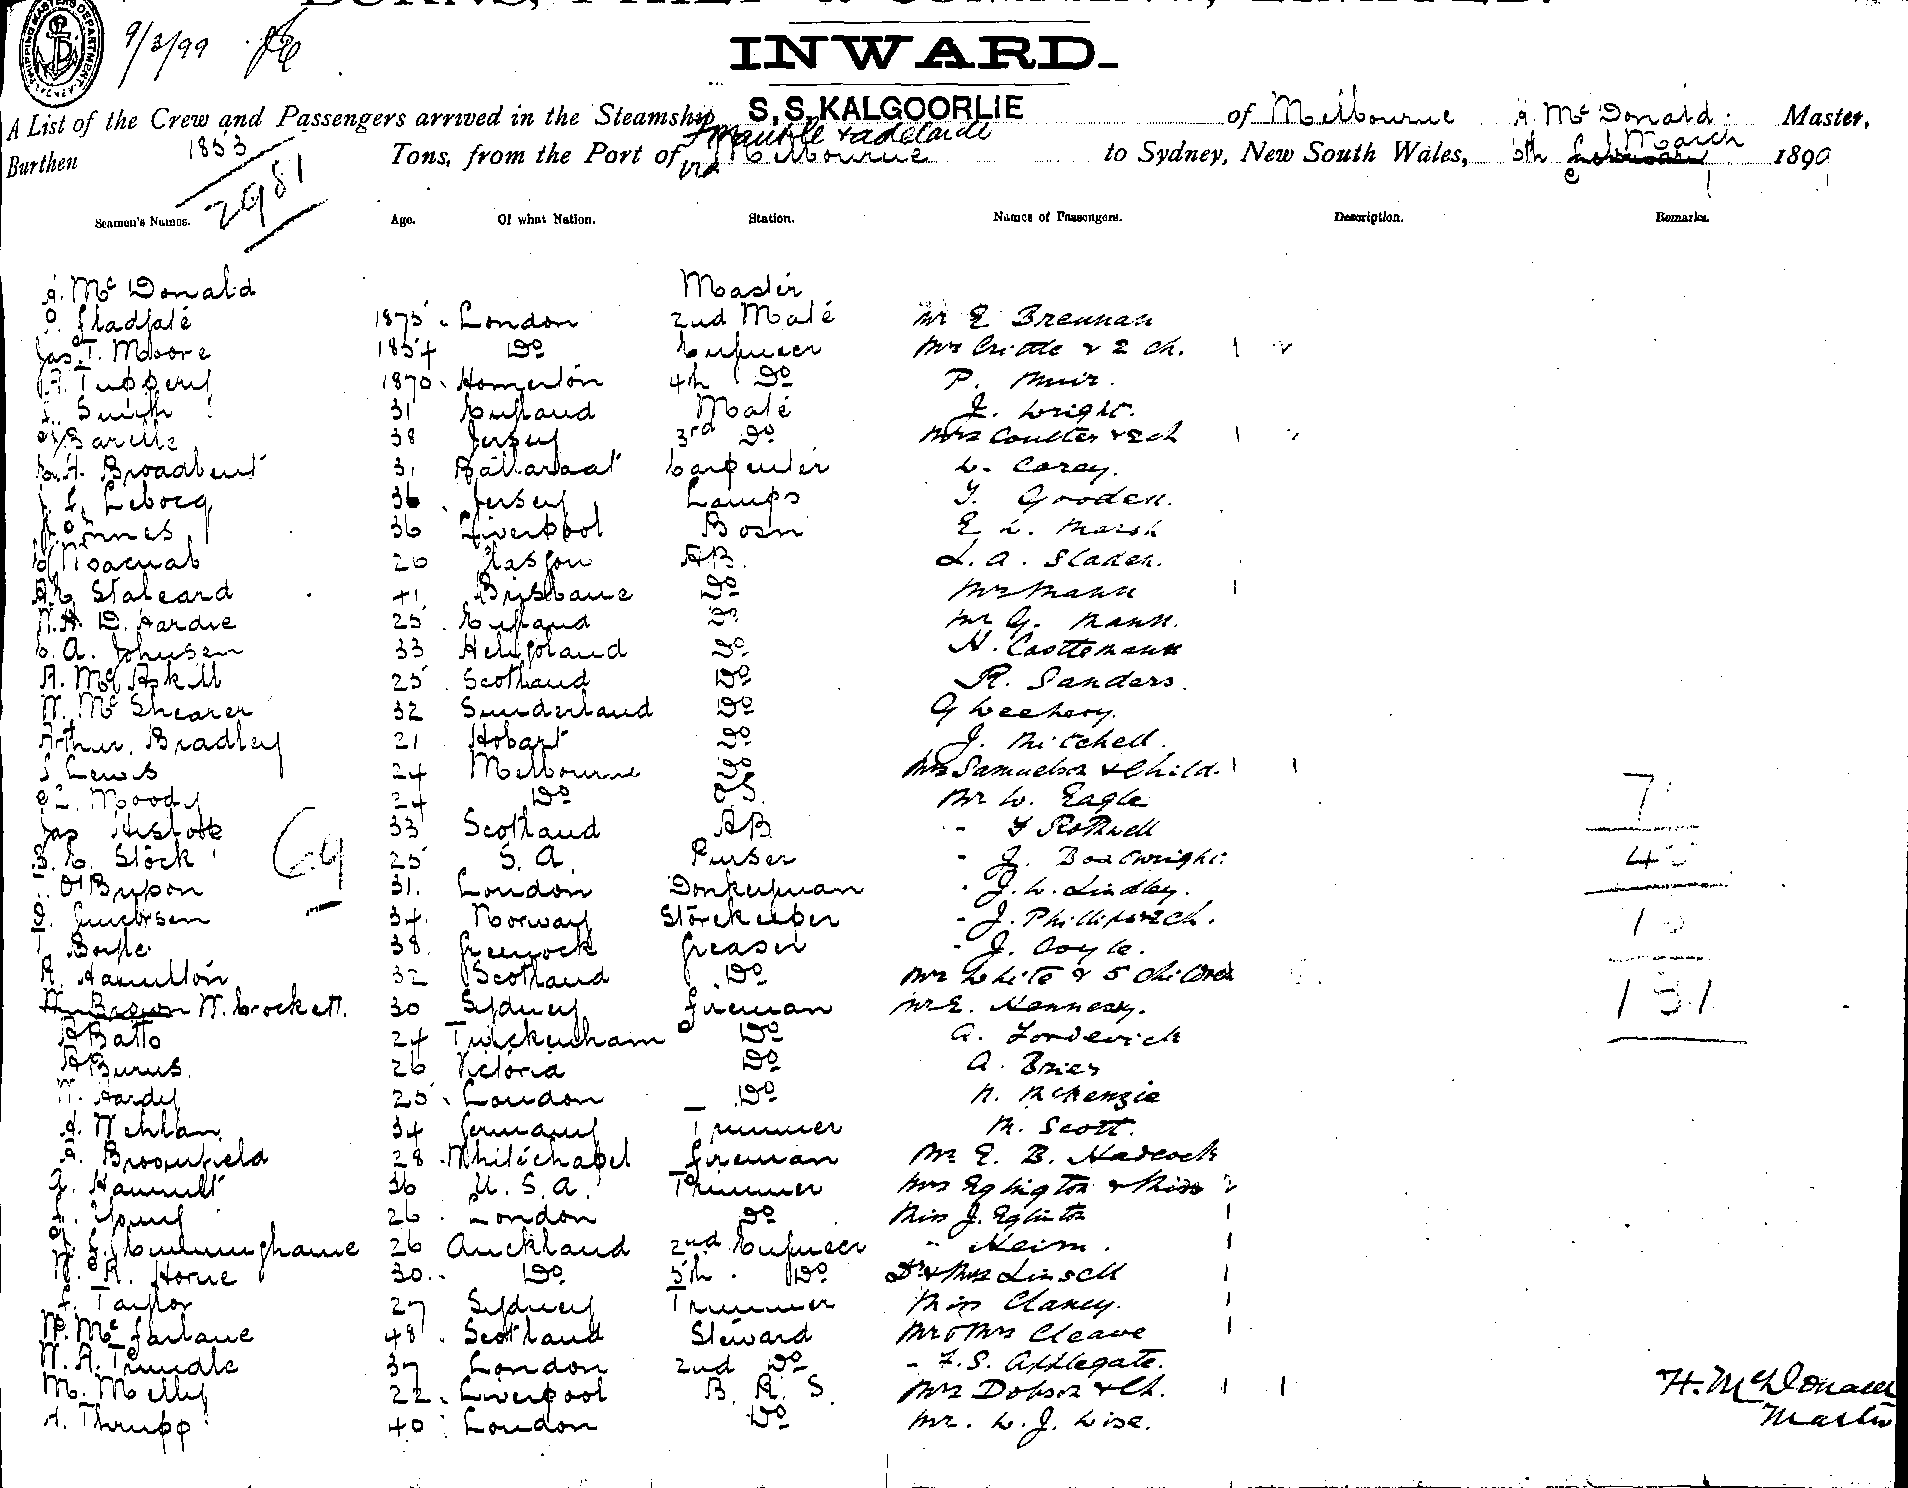 BURNS, PHILP & COMPANY, LIMITED.
9/3/99
INWARD.
A List of the Crew and Passengers arrived in the Steamship S.S. KALGOORLIE of Melbourne A McDonald Master,
Burthen 1853 Tons, from the Port of Fremantle & Adelaide via Melbourne to Sydney, New South Wales, 6th March 1899
2981
Seamen's Names. Age. Of what Nation. Station. Names of Passengers. Description. Remarks.
A. McDonald Master
1875 London 2nd Mate Mr E Brennan
Jas. T. Moore 1854 Do Engineer Mrs Crittle & 2 ch.
Tuppery 1870 Homerton 4th Do P. Muir.
Smith 31 England Mate J. Wright.
38 Jersey 3rd Do Mrs Coulter & 2 ch
Broadbent 31 Ballaraat Carpenter L. Carey.
Lebocq 36 Jersey Lamps T. Gooden.
Innes 36 Liverpool Bosn E L. Marsh
20 Glasgow AB. L. A. Sladen.
41 Brisbane Do Mrs Mann
D. Hardie 25 England Do Mr G. Mann.
C. A. Johnsen 33 Heligoland Do
A. McAskill 25 Scotland Do R. Sanders.
W. McShearer 32 Sunderland Do G
Arthur Bradley 21 Hobart Do J. Mitchell.
Lewis 24 Melbourne Do Mrs Samuelson & Child.
Moody 24 Do OS. Mr W. Eagle
Jas 33 Scotland AB - Rothwell
Stock 25 S. A. Purser - J. Boatwright.
31. London Donkeyman - J. W. Lindley.
34. Norway Storekeeper - J. Phillips & 2 ch.
38. Greenock Greaser - J. Coyle.
A. Hamilton 32 Scotland Do Mrs White & 5 Children
W. Crockett. 30 Sydney Fireman Mr E. Hennessy.
Batto 24 Twickenham Do A.
A Burns 26 Victoria Do A. Brier
W. Hardy 25 London Do N. McKenzie
34 Germany Trimmer M. Scott.
Broomfield 28 Whitechapel Fireman Mr E. B. Hadcock
36 U. S. A. Trimmer Mrs Eglington & Miss
Young 26 London Do Miss J. Eglinton
Cunninghame 26 Auckland 2nd Engineer
R. Horne 30 Do 5th Do Dr & Mrs Linsell
Taylor 27 Sydney Trimmer Miss Clancy.
W. McFarlane 48 Scotland Steward Mr & Mrs Cleave
W. A. Trundle 37 London 2nd Do - F. S. Applegate.
M. Melly 22 Liverpool B. R. S. Mrs Dobson & Ch.
A. Thrupp 40 London Do Mr. W. J. Wise.
7
131
H. McDonald
Master